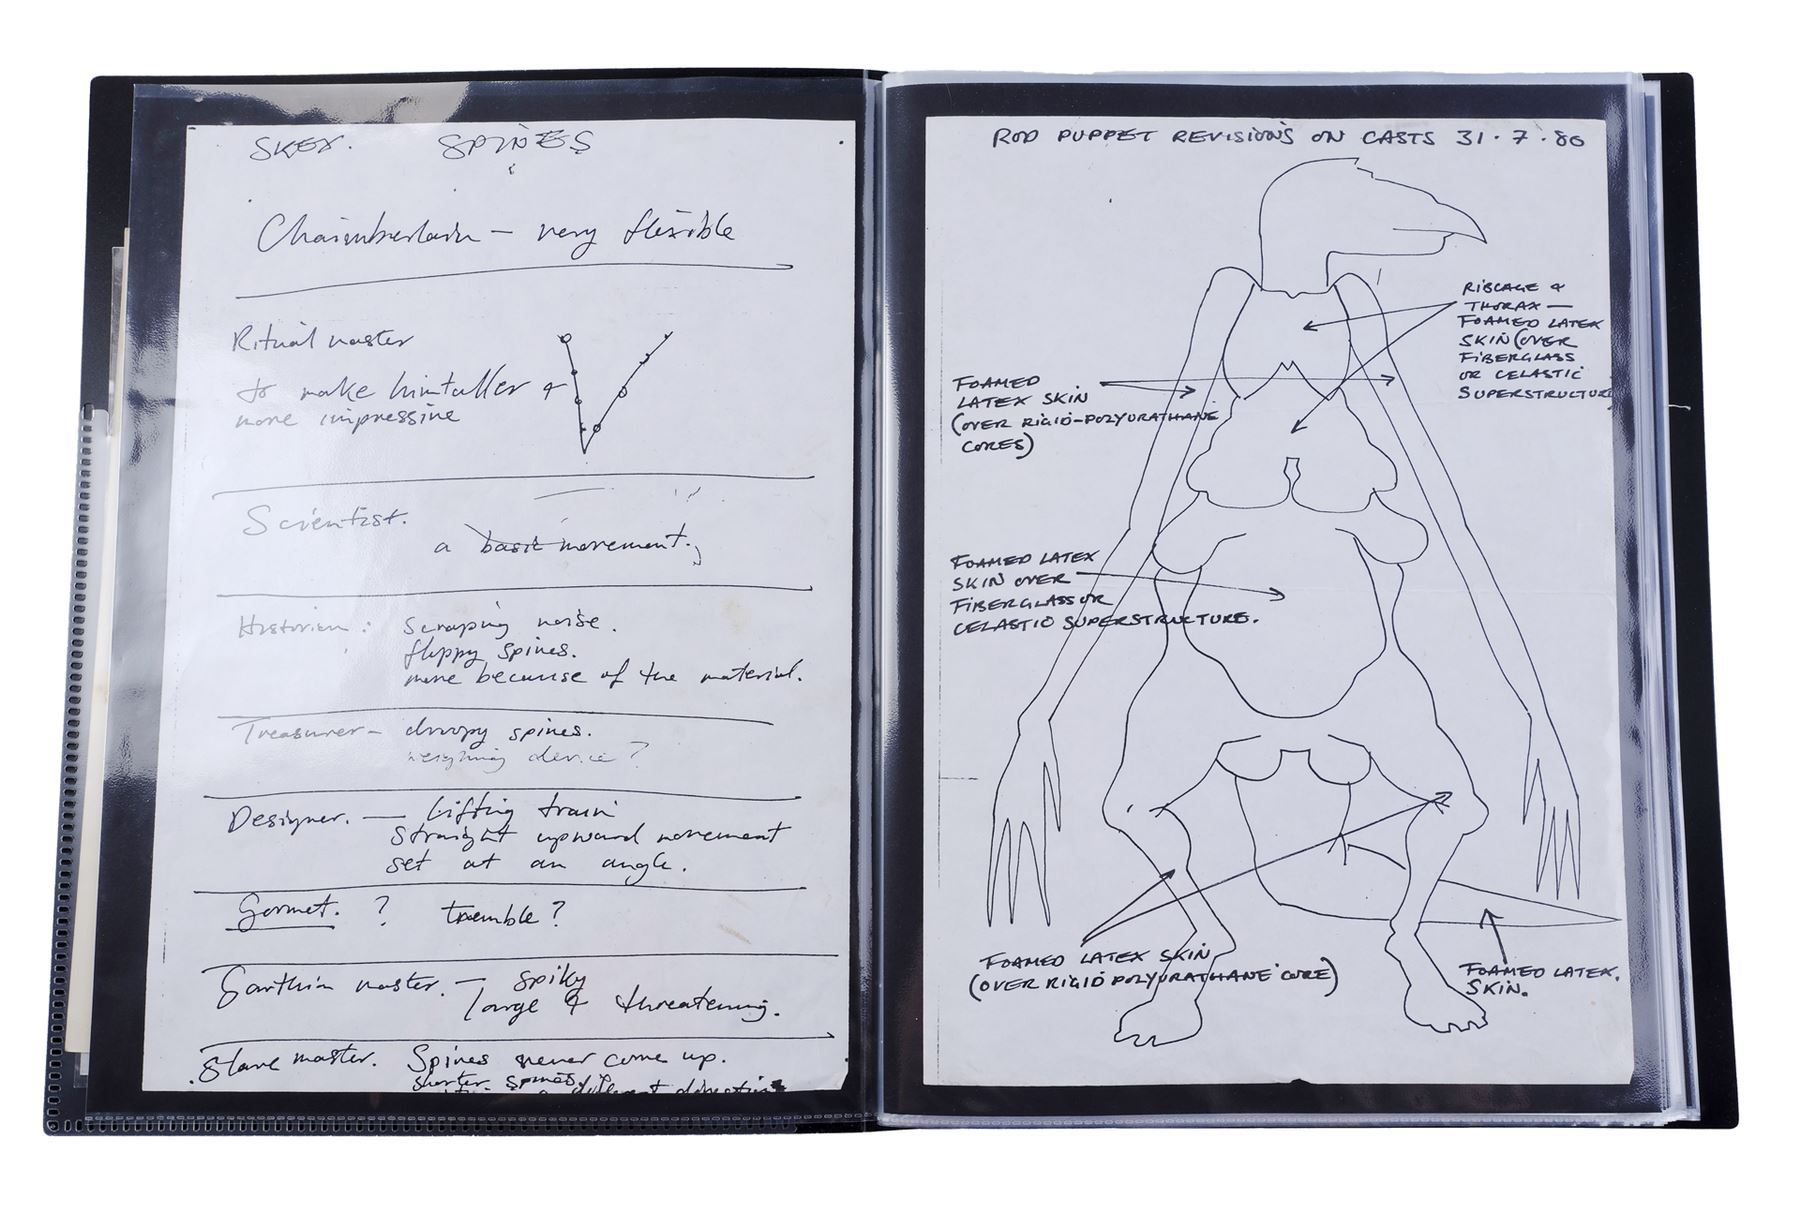 SKEX. SPINES
Chaimberlain - very flexible
Ritual master
to make him taller &
more impressive
Scientist.
a basic movement.
Historian: scraping noise.
floppy spines.
more because of the material.
Treasurer - droopy spines.
weighing device?
Designer. - Lifting train
straight upward movement
set at an angle.
Gormet. ? tremble?
Garthim master. - spiky
large & threatening.
Slave master. Spines never come up.
shorter spines
different direction
ROD PUPPET REVISIONS ON CASTS 31.7.80
RIBCAGE &
THORAX -
FOAMED LATEX
SKIN (OVER
FIBERGLASS
OR CELASTIC
SUPERSTRUCTURE
FOAMED
LATEX SKIN
(OVER RIGID-POLYURATHANE
CORES)
FOAMED LATEX
SKIN OVER
FIBERGLASS OR
CELASTIC SUPERSTRUCTURE.
FOAMED LATEX SKIN
(OVER RIGID POLYURATHANE CORE)
FOAMED LATEX.
SKIN.